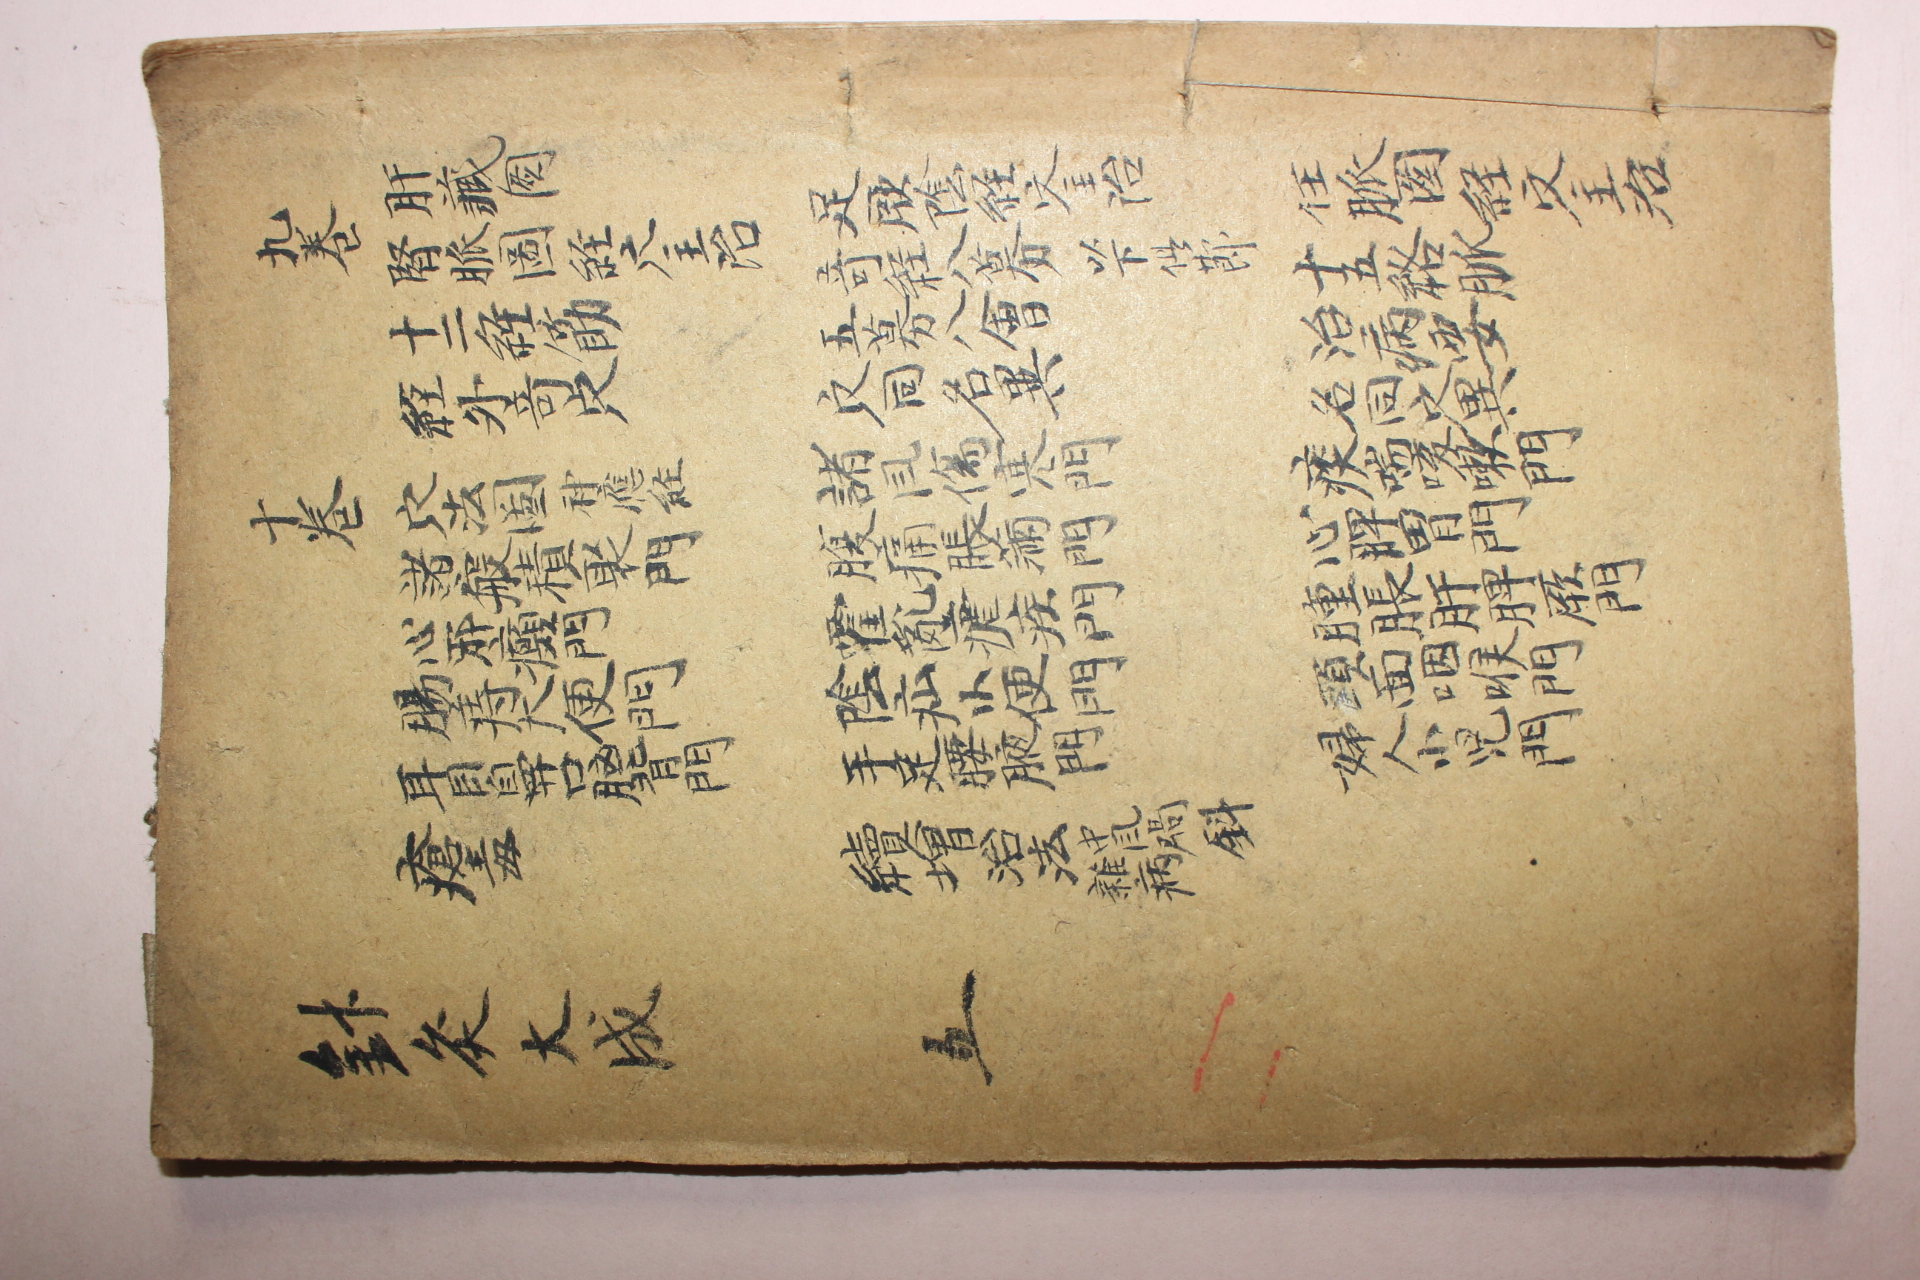 九卷
肝臟圖
足厥陰經穴主治
任脈圖經穴主治
腎脈圖經穴主治
奇經八募 以下俱節
十五絡脈
十二經筋
五募八會
治病要
經外奇穴
穴同名異
名同穴異
十卷
穴法圖 神應經
諸風傷寒門
痰喘咳嗽門
諸般積聚門
腹痛脹滿門
心脾胃門
心邪癲門
霍亂瘧疾門
腫脹肝脾厥門
腸痔大便門
陰疝小便門
頭面咽喉門
耳目鼻口腦背門
手足腰腋門
婦人小兒門
瘡毒
續增治法 中風喎斜
雜病
針灸大成 五